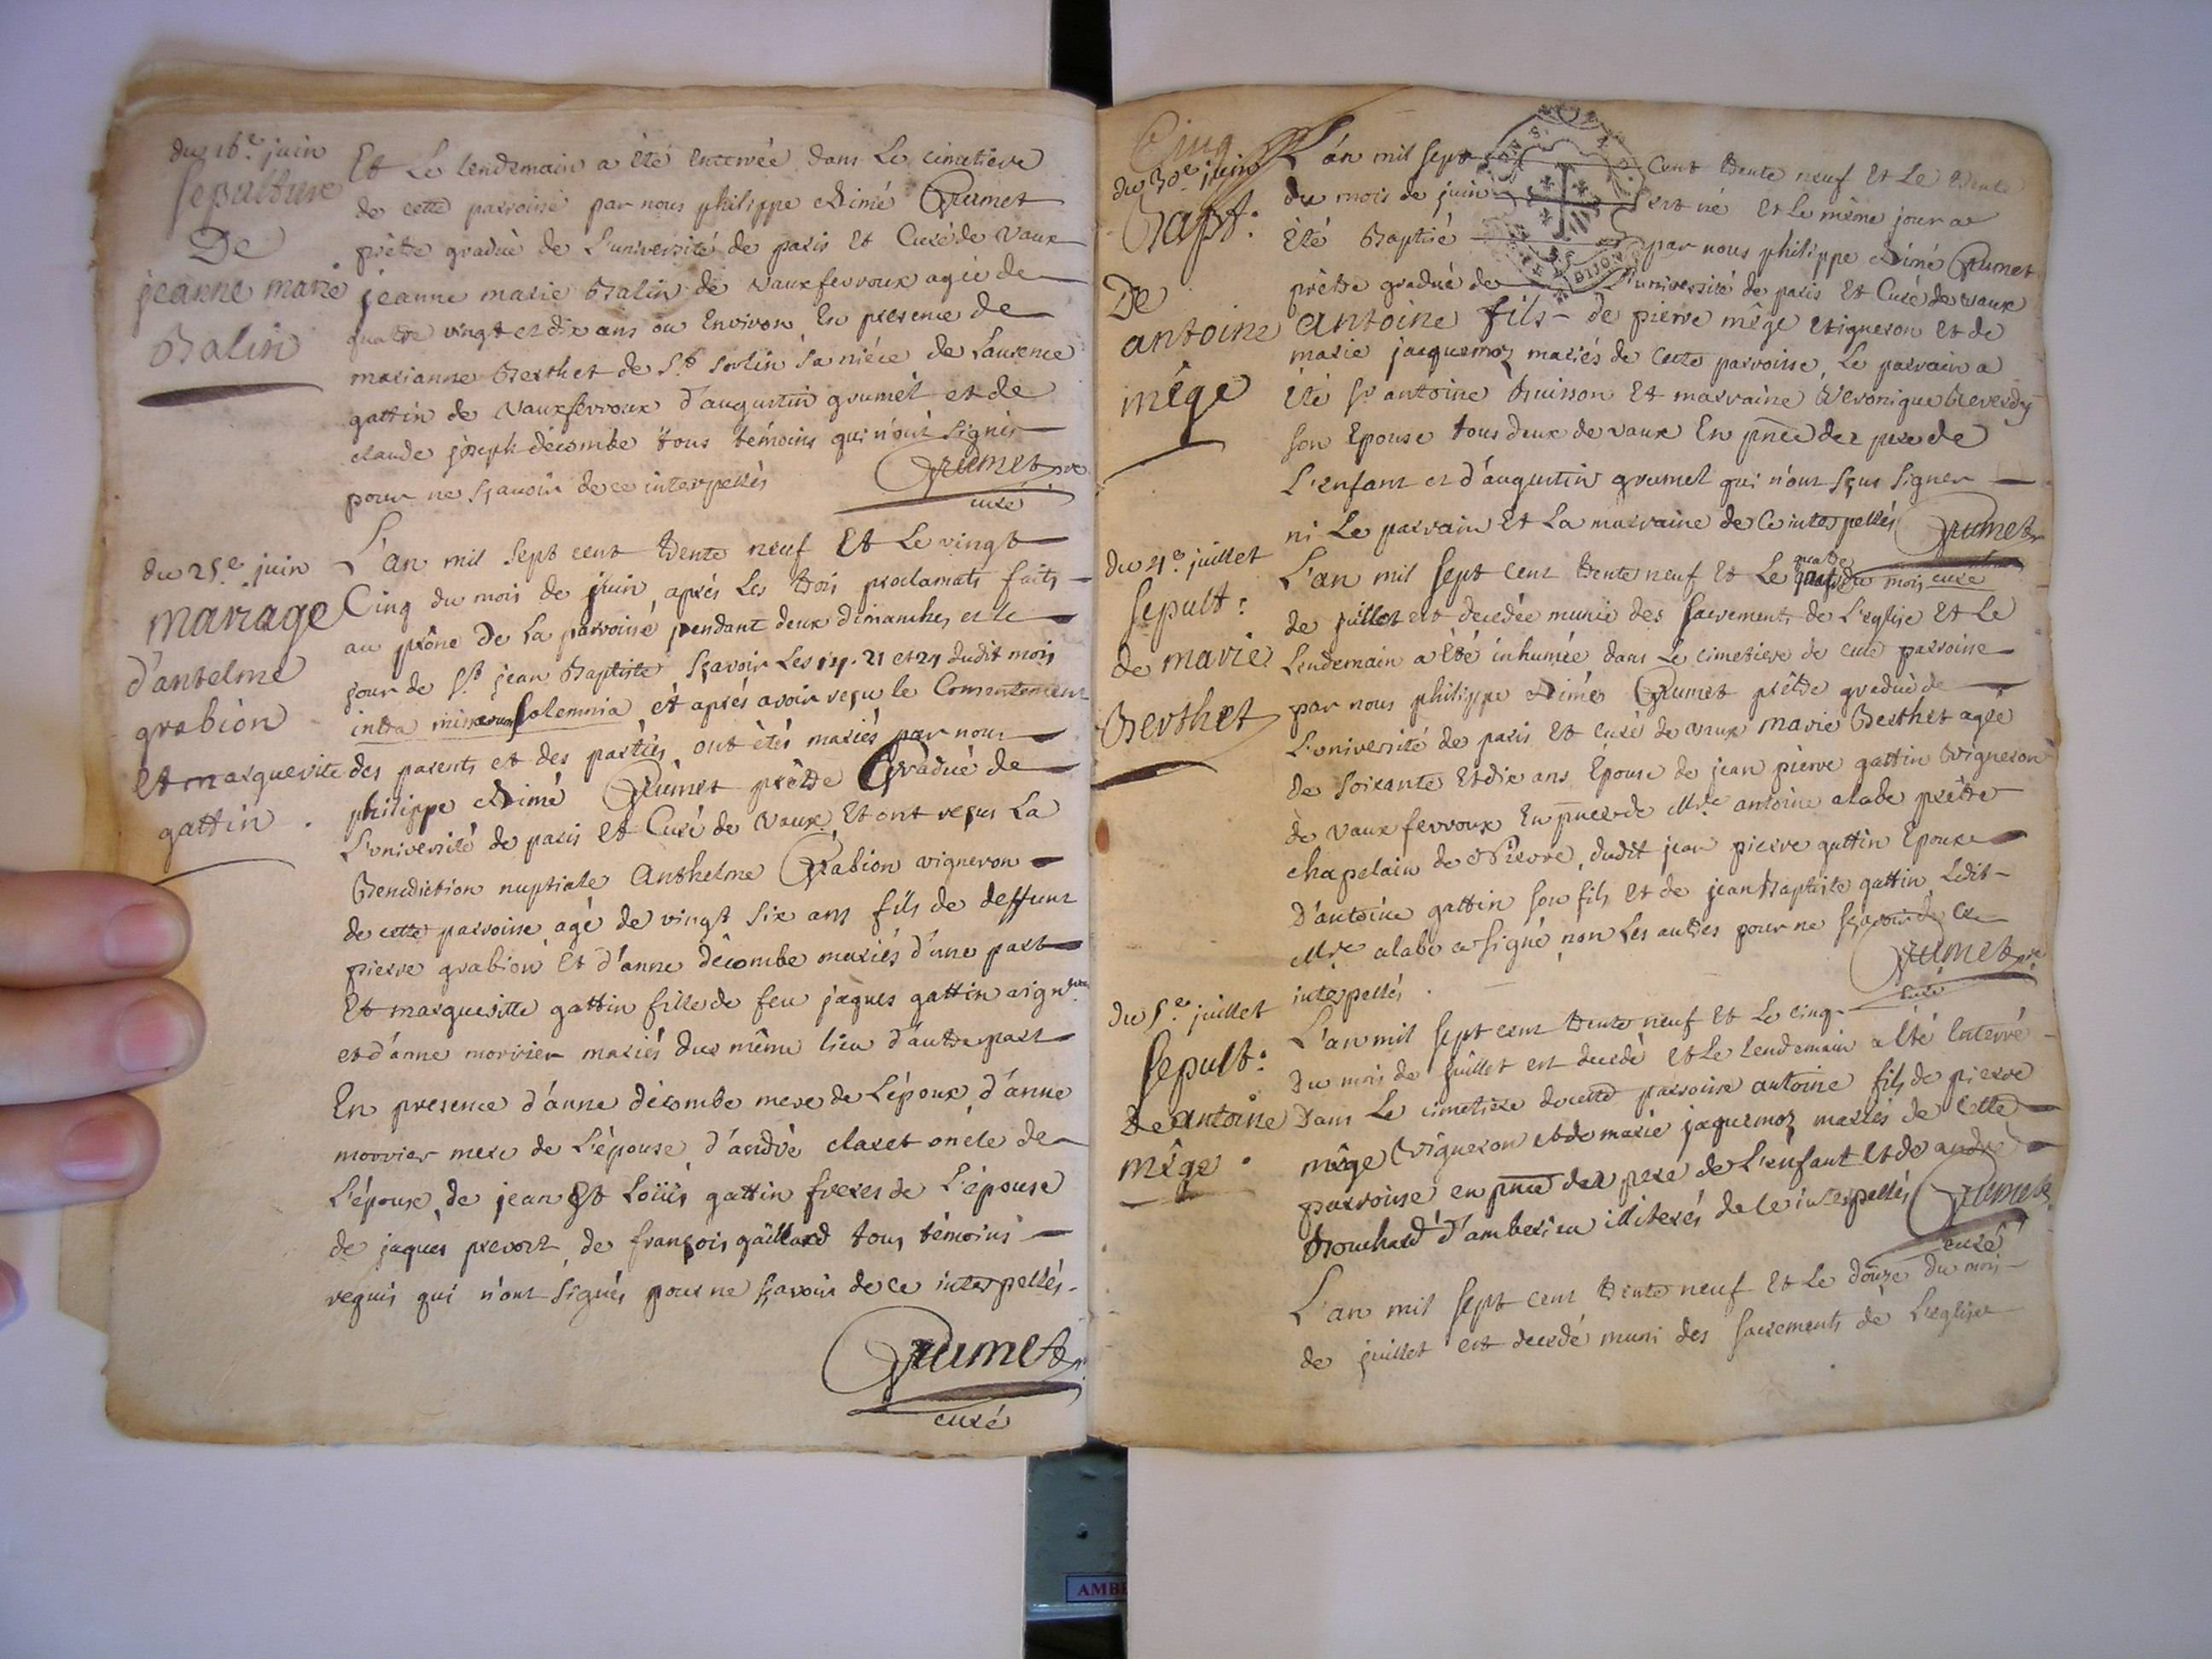 du 16e juin
sepulture
De
jeanne marie
Balin
Et Le lendemain a été enterrée dans Le cimetiere
de cette parroisse par nous philippe Aimé Grumet
prêtre gradué de L'université de paris Et Curé de vaux
jeanne marie Balin de vauxfevroux agée de
quatre vingt et dix ans ou Environ En presence de
marianne Berthet de St sorlin sa niéce de Laurence
gattin de vauxfevroux d'augustin grumet et de
claude joseph décombe tous témoins qui n'ont signés
pour ne sçavoir de ce interpellés Grumet pre
curé
du 25e juin
mariage
d'antelme
grabion
Et marguerite
gattin .
L'an mil sept cent trente neuf Et Le vingt
Cinq du mois de juin, aprés Les trois proclamats faits
au prône De La parroisse, pendant deux dimanches et le
jour de St jean Baptiste, sçavoir Les 14. 21 et 24 dudit mois
intra missarum solemnia, et aprés avoir reçu le Consentement
des parents et des parties, ont étés mariés par nous
philippe Aimé Grumet prêtre Gradué de
L'université de paris Et Curé de vaux, Et ont reçus La
Benediction nuptiale Anthelme Grabion vigneron
de cette parroisse agé de vingt six ans fils de deffunt
pierre grabion Et d'anne décombe mariés d'une part
Et marguerite gattin fille de feu jaques gattin vigneron
et d'anne morrier mariés du même lieu d'autre part
En presence d'anne décombe mere de L'époux, d'anne
morrier mere de L'épouse, d'andré claret oncle de
L'épouse, de jean Et Loüis gattin freres de L'épouse
de jaques prevost, de françois gaillard tous témoins
requis qui n'ont signés pour ne sçavoir de ce interpellés.
Grumet pr.
curé
Cinq
du 30e juin
Bapt:
De
antoine
mêge
L'an mil sept cent trente neuf Et Le trente
du mois de juin Est né Et Le même jour a
Eté Baptisé par nous philippe Aimé Grumet
prêtre gradué de L'université de paris Et Curé de vaux
antoine fils de pierre mêge vigneron Et de
marie jacquemoz mariés de cette parroisse, Le parrain a
été sr antoine Buisson Et marraine Veronique Reverdy
son Epouse tous deux de vaux En pnce du pere de
L'enfant et d'augustin grumet qui n'ont sçus signer
ni Le parrain Et La marraine de ce interpellés Grumet
curé
du 4e juillet
sepult:
de marie
Berthet
L'an mil sept cent trente neuf Et Le quatre du mois
de juillet est decedée munie des sacrements de L'eglise Et Le
Lendemain a Eté inhumée dans Le cimetiere de cette parroisse
par nous philippe Aimé Grumet prêtre gradué de
L'université de paris Et curé de vaux marie Berthet agée
de soixante Et dix ans Epouse de jean pierre gattin vigneron
de vaux fevroux En pnce de Mre antoine alabe prêtre
chapelain de , dudit jean pierre gattin Epoux
D'antoine gattin son fils Et de jean Baptiste gattin Ledit
Mre alabe a signé, non Les autres pour ne sçavoir de ce
interpellés . Grumet pre
curé
du 5e juillet
sepult:
De antoine
mêge .
L'an mil sept cent trente neuf Et Le cinq
Du mois de juillet est decedé Et Le lendemain a Eté Enterré
Dans Le cimetiere de cette parroisse antoine fils de pierre
mêge vigneron et de marie jaquemoz mariés de Cette
parroisse en pnce du pere de L'enfant Et de andré
Bouchard d'amberieu illiterés de ce interpellés Grumet
curé
L'an mil sept cent trente neuf Et Le douze du mois
de juillet est decedé muni des sacrements de L'eglise
AMB